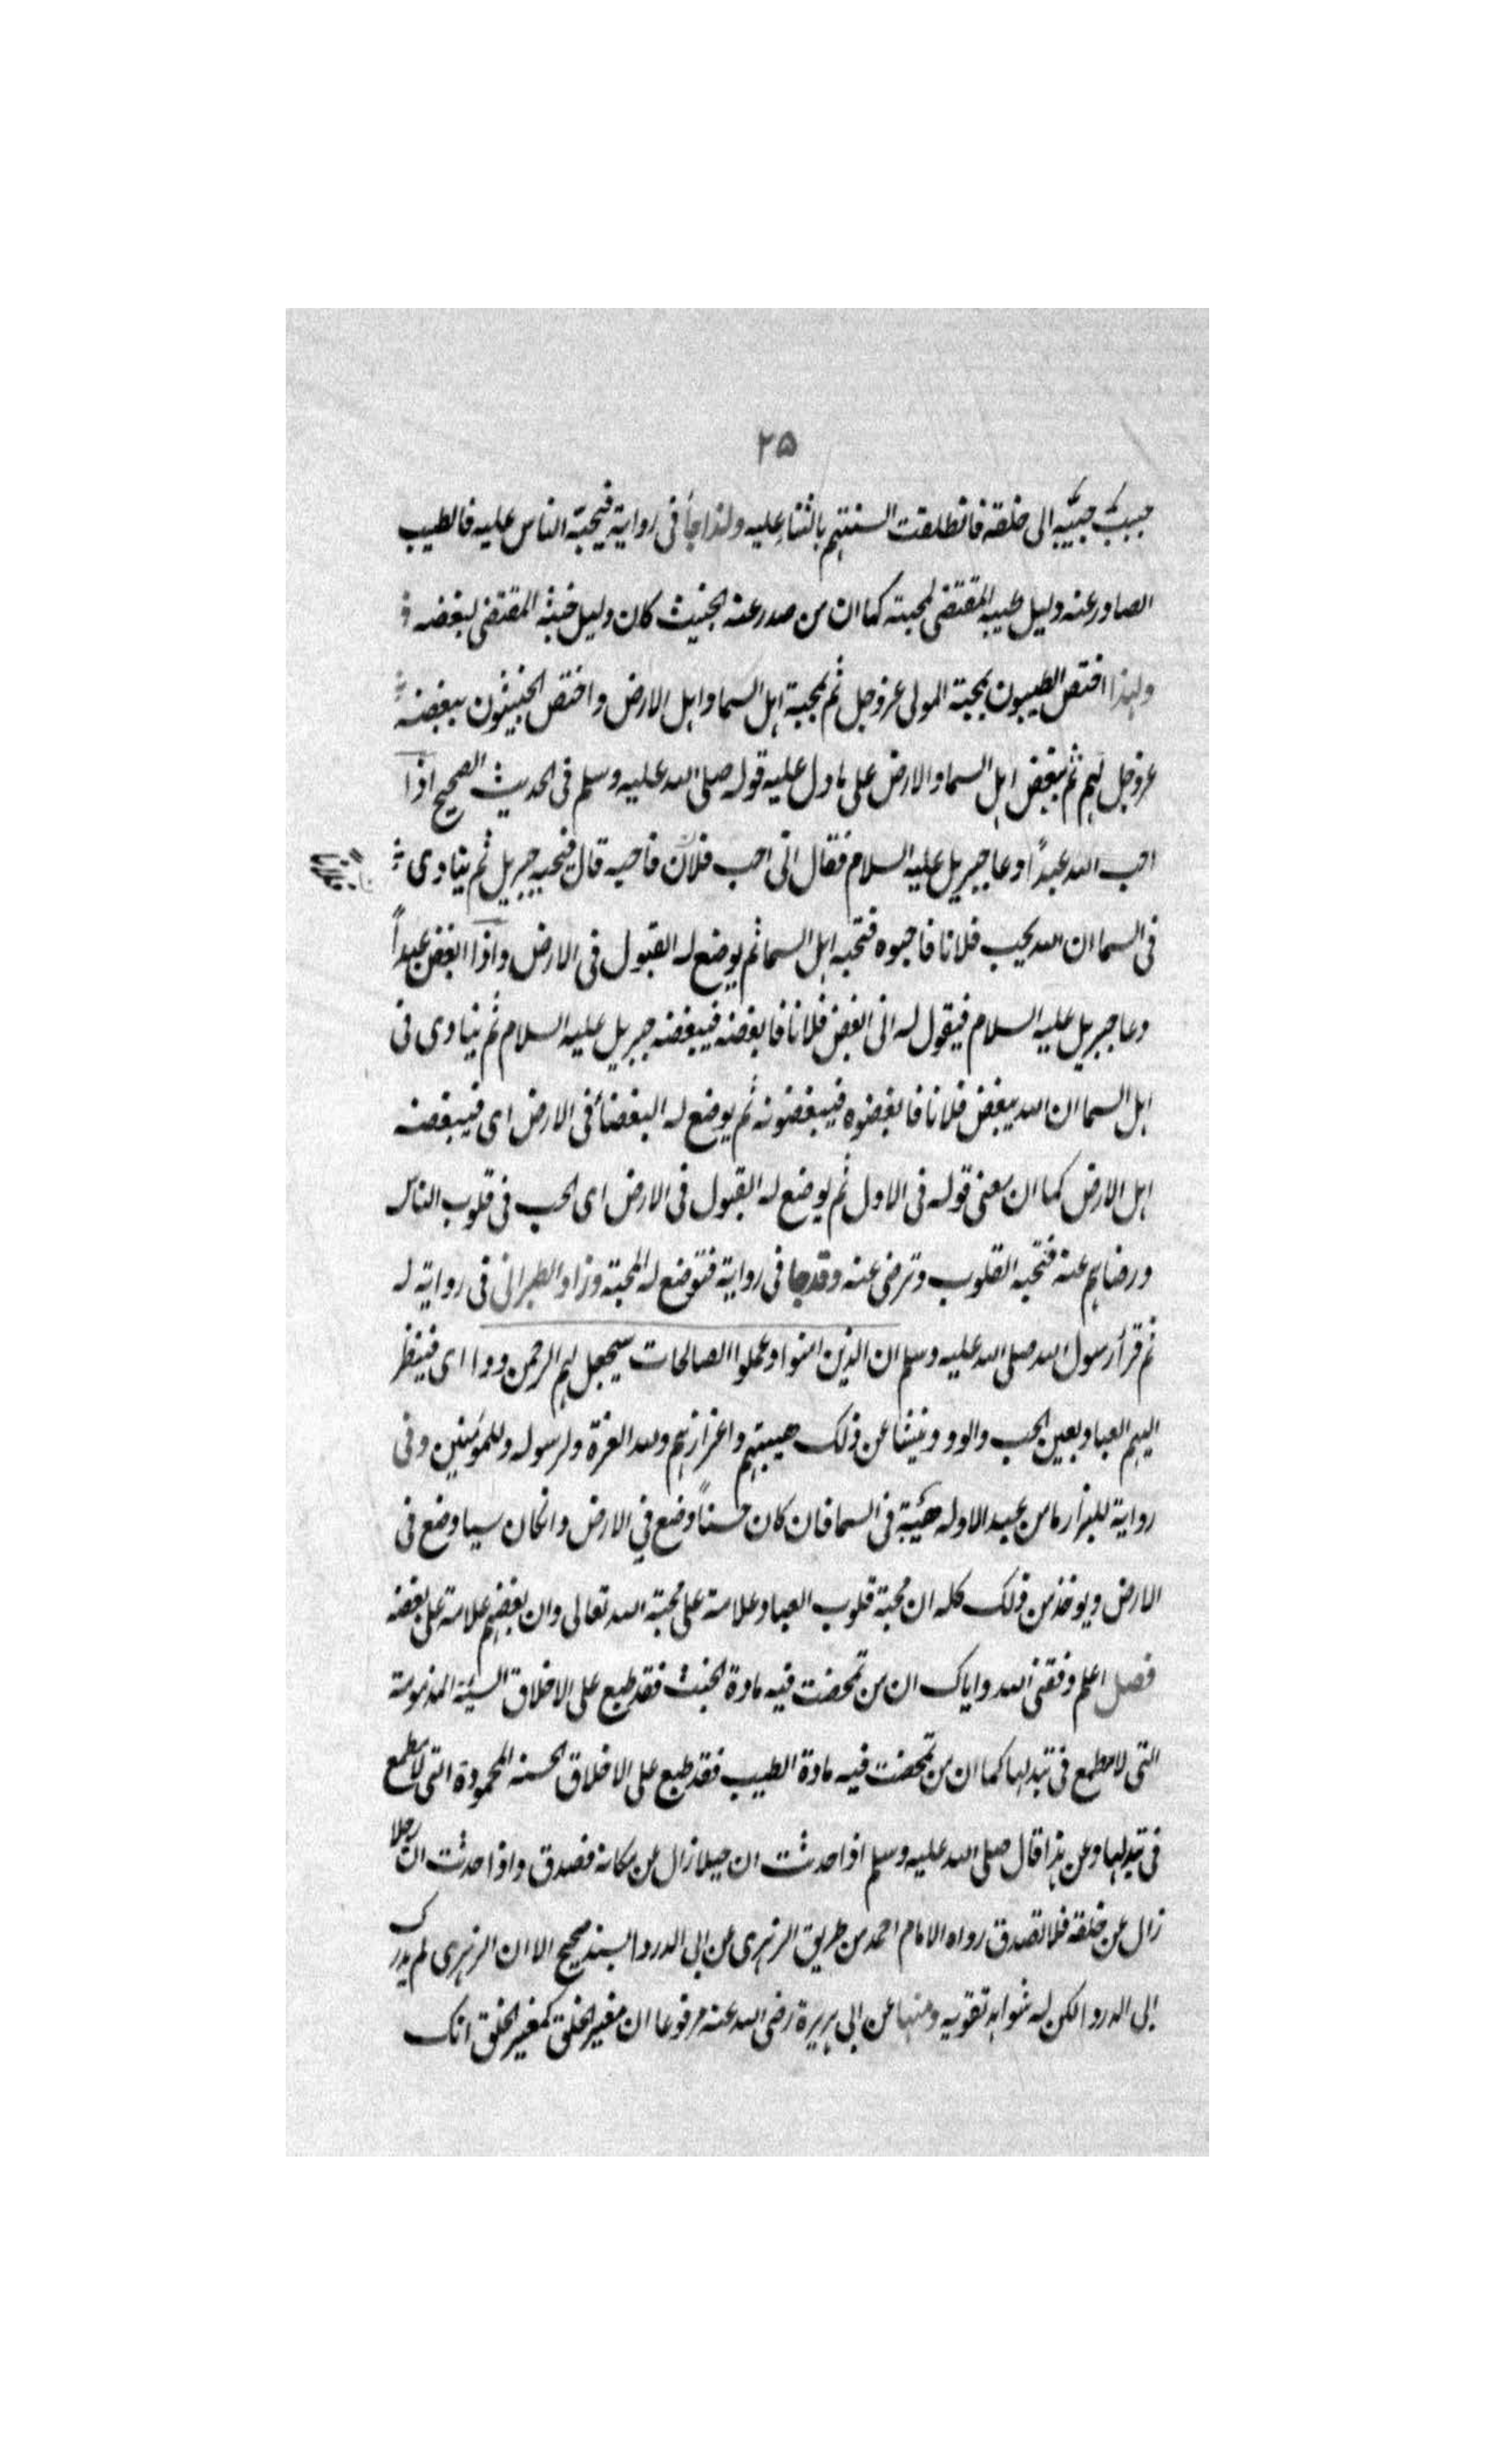 ٢٥
حببت حبيبه الى خلقه فانطلقت السنتهم بالثناء عليه ولذا جاء فى رواية فيحبه الناس عليه فالطيب
الصادر عنه دليل طيبه المقتضى لمحبته كما ان من صدر عنه الخبيث كان دليل خبثه المقتضى لبغضه
ولهذا اختص الطيبون بمحبة المولى عز وجل ثم بمحبة اهل السما واهل الارض واختص الخبيثون ببغضه
عز وجل لهم ثم ببغض اهل السما والارض على ما دل عليه قوله صلى الله عليه وسلم فى الحديث الصحيح اذا
احب الله عبدًا دعا جبريل عليه السلام فقال انى احب فلان فاحبه قال فيحبه جبريل ثم ينادى
فى السما ان الله يحب فلانا فاحبوه فتحبه اهل السما ثم يوضع له القبول فى الارض واذا ابغض عبداً
دعا جبريل عليه السلام فيقول له انى ابغض فلانا فابغضه فيبغضه جبريل عليه السلام ثم ينادى فى
اهل السما ان الله يبغض فلانا فابغضوه فيبغضونه ثم يوضع له البغضاء فى الارض اى فيبغضه
اهل الارض كما ان معنى قوله فى الاول ثم يوضع له القبول فى الارض اى الحب فى قلوب الناس
ورضاهم عنه فتحبه القلوب وترضى عنه وقد جا فى رواية فتوضع له المحبة وزاد الطبرانى فى رواية له
ثم قرأ رسول الله صلى الله عليه وسلم ان الذين امنوا وعملوا الصالحات سيجعل لهم الرحمن ودا اى فينظر
اليهم العباد بعين الحب والود وينشا عن ذلك هيبتهم واعزازهم ولله العزة ولرسوله وللمؤمنين وفى
رواية للبزار ما من عبد الا وله هيئة فى السما فان كان حسناً وضع في الارض وانكان سيا وضع فى
الارض ويوخذ من ذلك كله ان محبة قلوب العباد علامة على محبة الله تعالى وان بغضهم علامة على بغضه
فصل اعلم وفقنى الله واياك ان من تمحضت فيه مادة الخبث فقد طبع على الاخلاق السيئة المذمومة
التى لا مطمع فى تبدلها كما ان من تمحضت فيه مادة الطيب فقد طبع على الاخلاق الحسنه المحمودة التى لا مطمع
فى تبدلها وعن هذا قال صلى الله عليه وسلم اذا حدثت ان جبلا زال عن مكانه فصدق واذا حدثت ان رجلا
زال عن خلقه فلا تصدق رواه الامام احمد من طريق الزهرى عن ابى الدردا بسند صحيح الا ان الزهرى لم يدرك
ابى الدردا لكن له شواهد تقويه ومنها عن ابى هريرة رضى الله عنه مرفوعا ان مغير الخلق كمغير الخلق انك